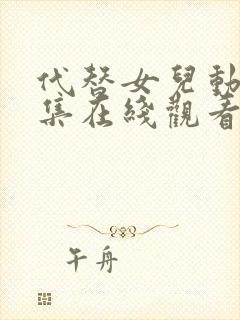 代替女兒動
集在綫觀看
午舟